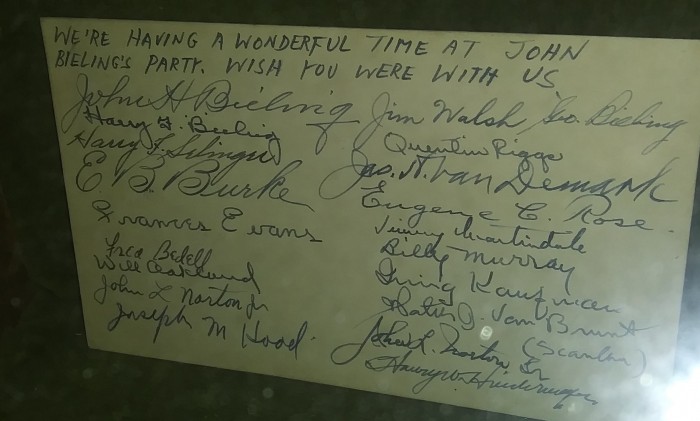 WE'RE HAVING A WONDERFUL TIME AT JOHN
BIELING'S PARTY. WISH YOU WERE WITH US
John H Bieling
Harry G. Bieling
Harry F.
E B. Burke
Frances Evans
Fred Bedell
Will Oakland
John L Norton Jr
Joseph M Hood.
Jim Walsh Geo. Bieling
Quentin Riggs
Jas. N. Van Demark
Eugene C. Rose.
Jimmy Martindale
Billy Murray
Irving Kaufman
J. Van Brunt
(Scanlan)
John L. Norton Sr